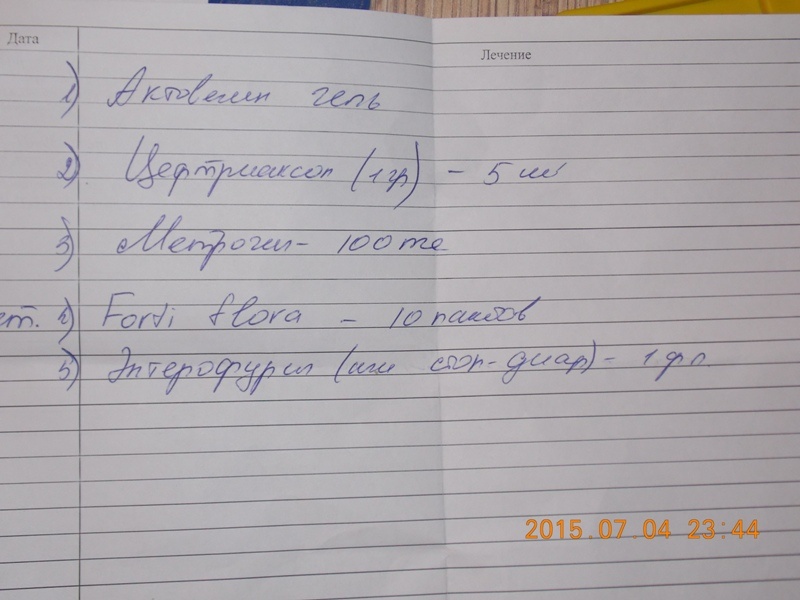 Дата
Лечение
1) Актовегин гель
2) Цефтриаксон (1 гр) - 5 шт
3) Метрогил - 100 мл
ет. 4) Forti flora - 10 пакетов
5) Энтерофурил (или стоп-диар) - 1 фл.
2015.07.04 23:44